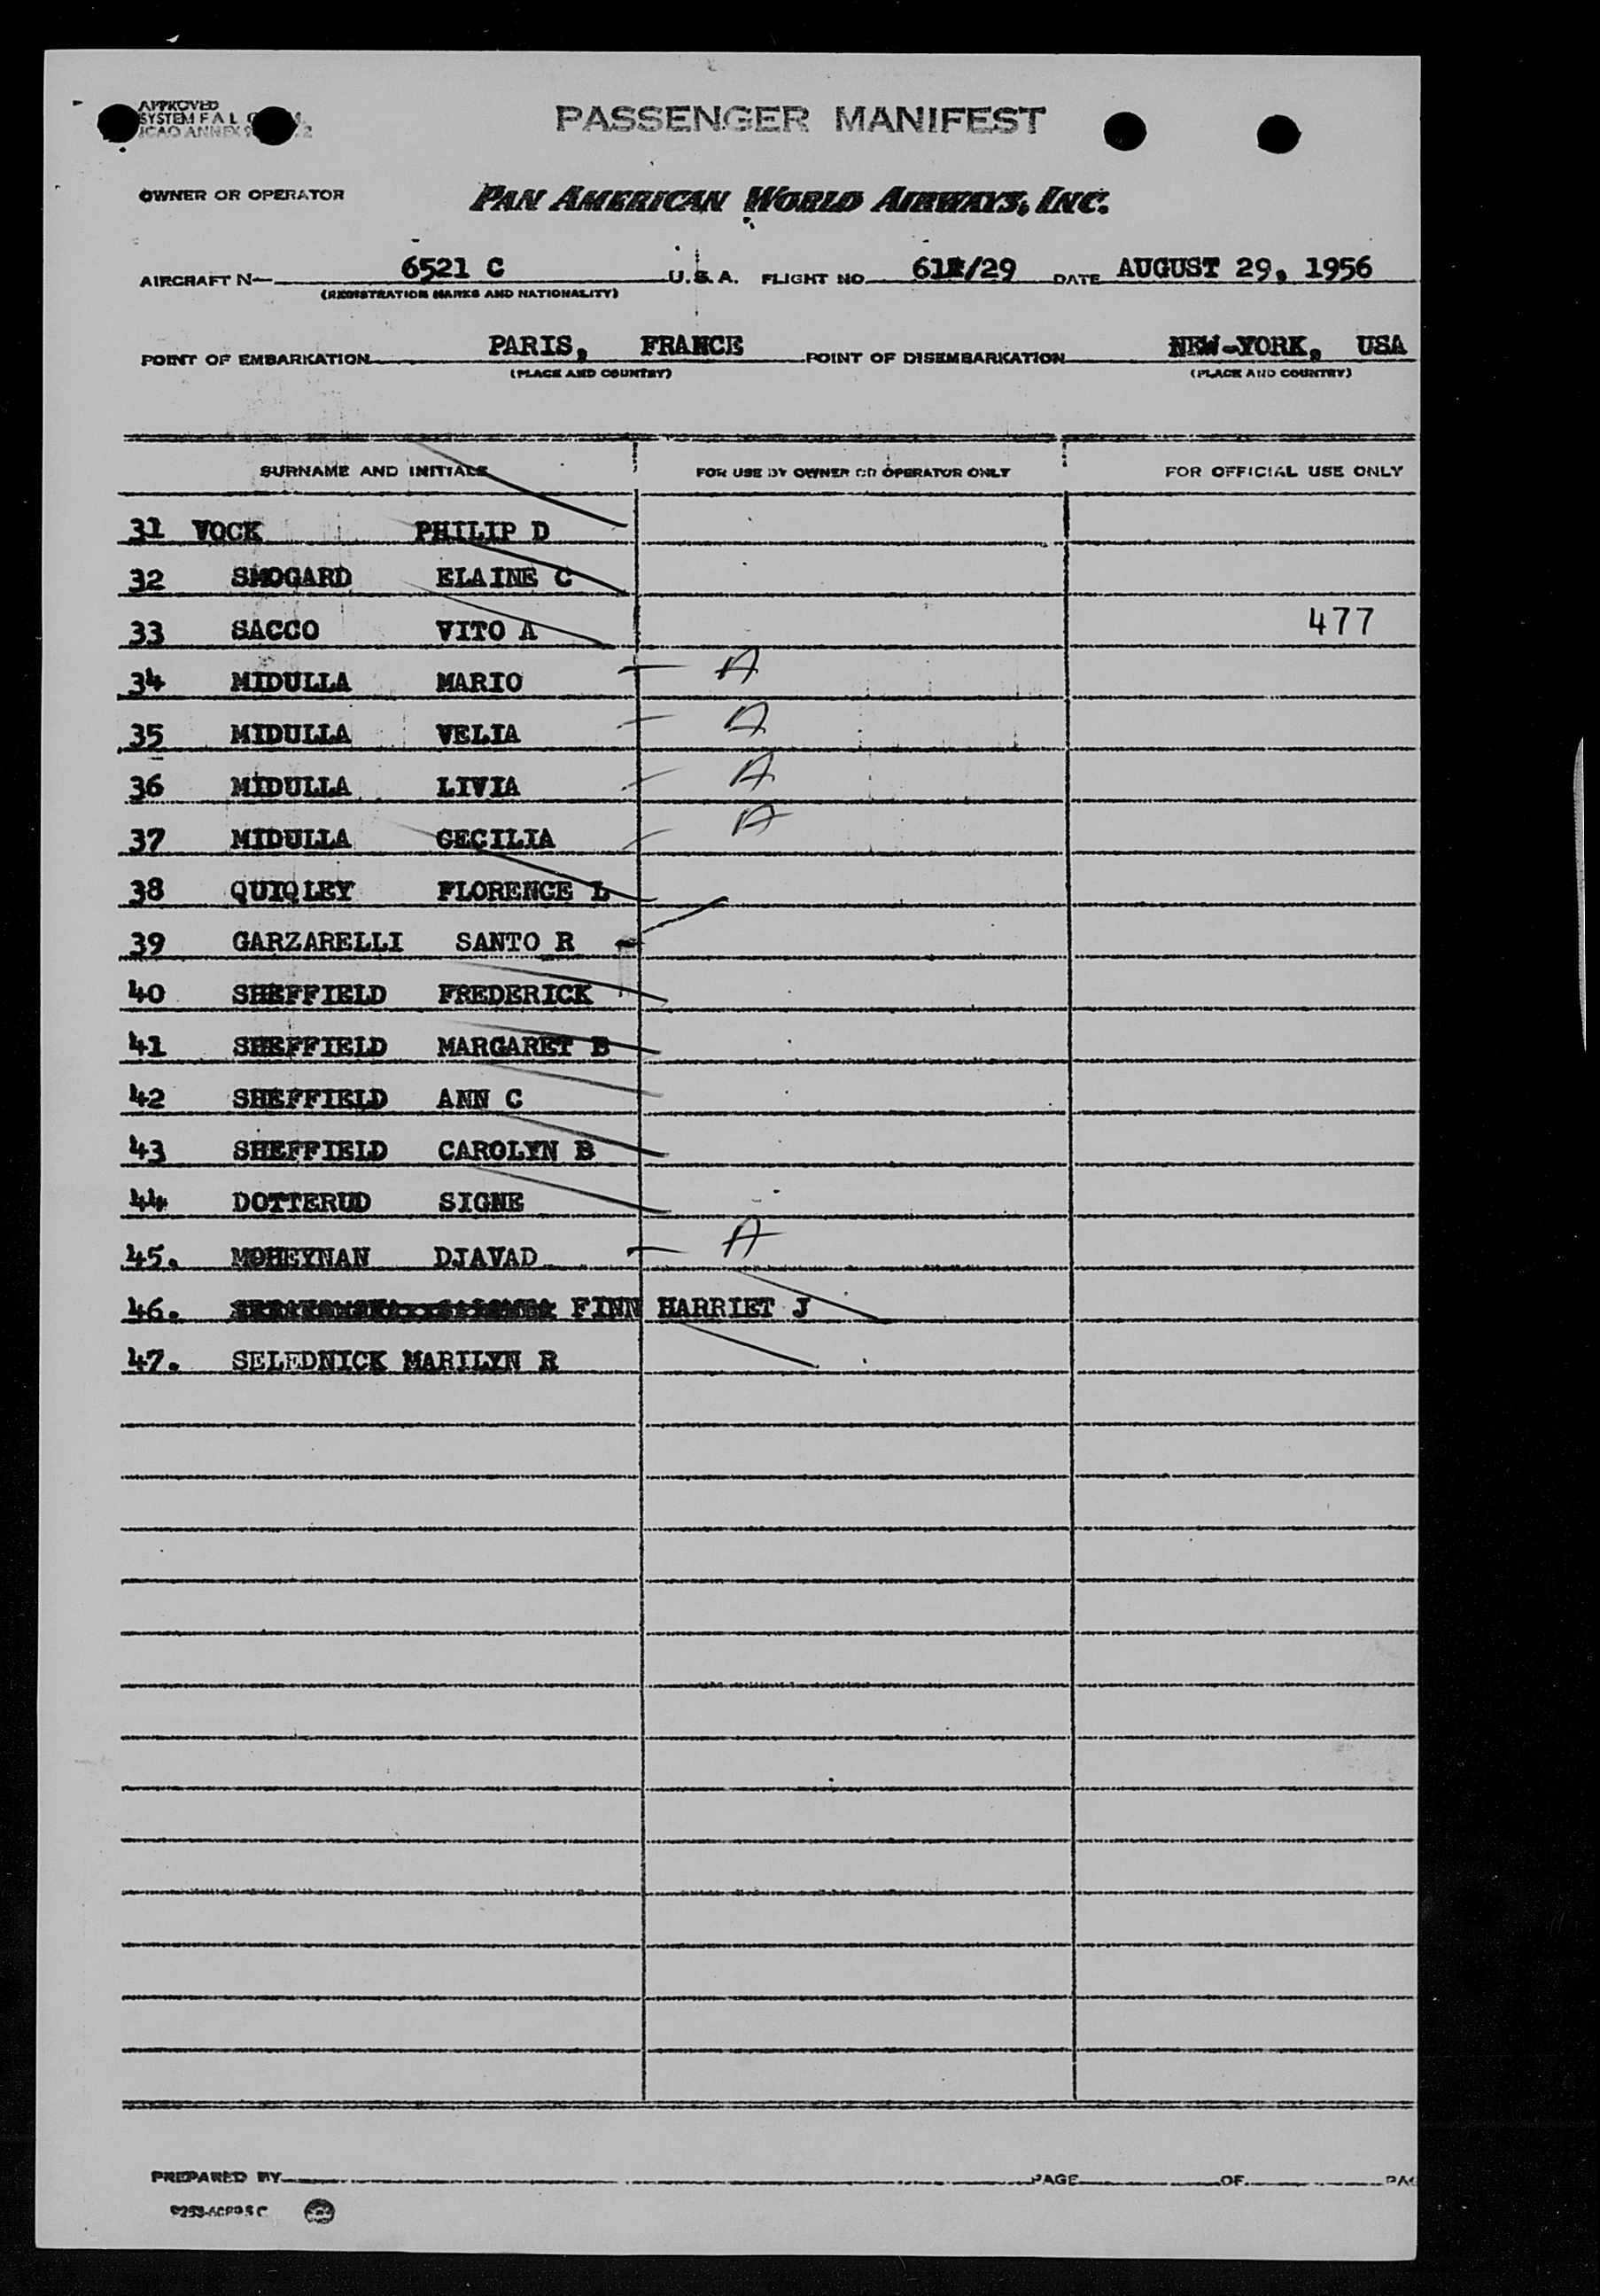 APPROVED
SYSTEM F A L
ICAO ANNEX 9
PASSENGER MANIFEST
OWNER OR OPERATOR PAN AMERICAN WORLD AIRWAYS, INC.
AIRCRAFT N— 6521 C U.S.A. FLIGHT NO. /29 DATE AUGUST 29, 1956
(REGISTRATION MARKS AND NATIONALITY)
POINT OF EMBARKATION PARIS, FRANCE POINT OF DISEMBARKATION NEW-YORK, USA
(PLACE AND COUNTRY) (PLACE AND COUNTRY)
SURNAME AND INITIALS FOR USE BY OWNER OR OPERATOR ONLY FOR OFFICIAL USE ONLY
31 VOCK PHILIP D
32 SMOGARD ELAINE C
33 SACCO VITO A 477
34 MIDULLA MARIO A
35 MIDULLA VELIA A
36 MIDULLA LIVIA A
37 MIDULLA CECILIA A
38 QUIQLEY FLORENCE L
39 GARZARELLI SANTO R
40 SHEFFIELD FREDERICK
41 SHEFFIELD MARGARET B
42 SHEFFIELD ANN C
43 SHEFFIELD CAROLYN B
44 DOTTERUD SIGNE
45. MOHEYNAN DJAVAD A
46. FINN HARRIET J
47. SELEDNICK MARILYN R
PREPARED BY PAGE OF PAG